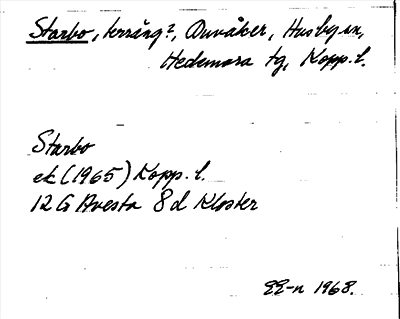 Starbo, terräng?, Duvåker, Husby sn,
Hedemora tg, Kopp. l.
Starbo
ek (1965) Kopp. l.
12 G Avesta 8 d Kloster
EE-n 1968.